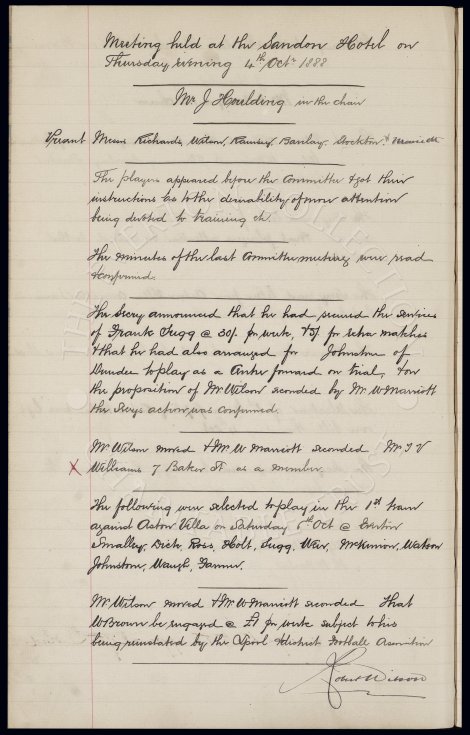 Meeting held at the Sandon Hotel on
Thursday evening 4th Octr 1888
Mr J Houlding in the chair
Present Messrs Richards, Wilson, Ramsey, Barclay, Stockton, & Marriott
The players appeared before the Committee & got their
instructions as to the desirability of more attention
being devoted to training etc.
The minutes of the last Committee meeting were read
& confirmed.
The Secry announced that he had secured the services
of Frank Sugg @ 30/- per week, & 5/- for extra matches
& that he had also arranged for Johnstone of
Dundee to play as a Center forward on trial, & on
the proposition of Mr Wilson seconded by Mr W Marriott
the Secys action was confirmed.
Mr Wilson moved & Mr W Marriott seconded Mr J V
X Williams 7 Baker St as a member
The following were selected to play in the 1st team
against Aston Villa on Saturday 6th Oct @ Everton
Smalley, Dick, Ross, Holt, Sugg, Weir, McKinnon, Watson
Johnstone, Waugh, Farmer.
Mr Wilson moved & Mr W Marriott seconded That
W Brown be engaged @ £1 per week subject to his
being reinstated by the Lpool & district Football Association
Robert Wilson